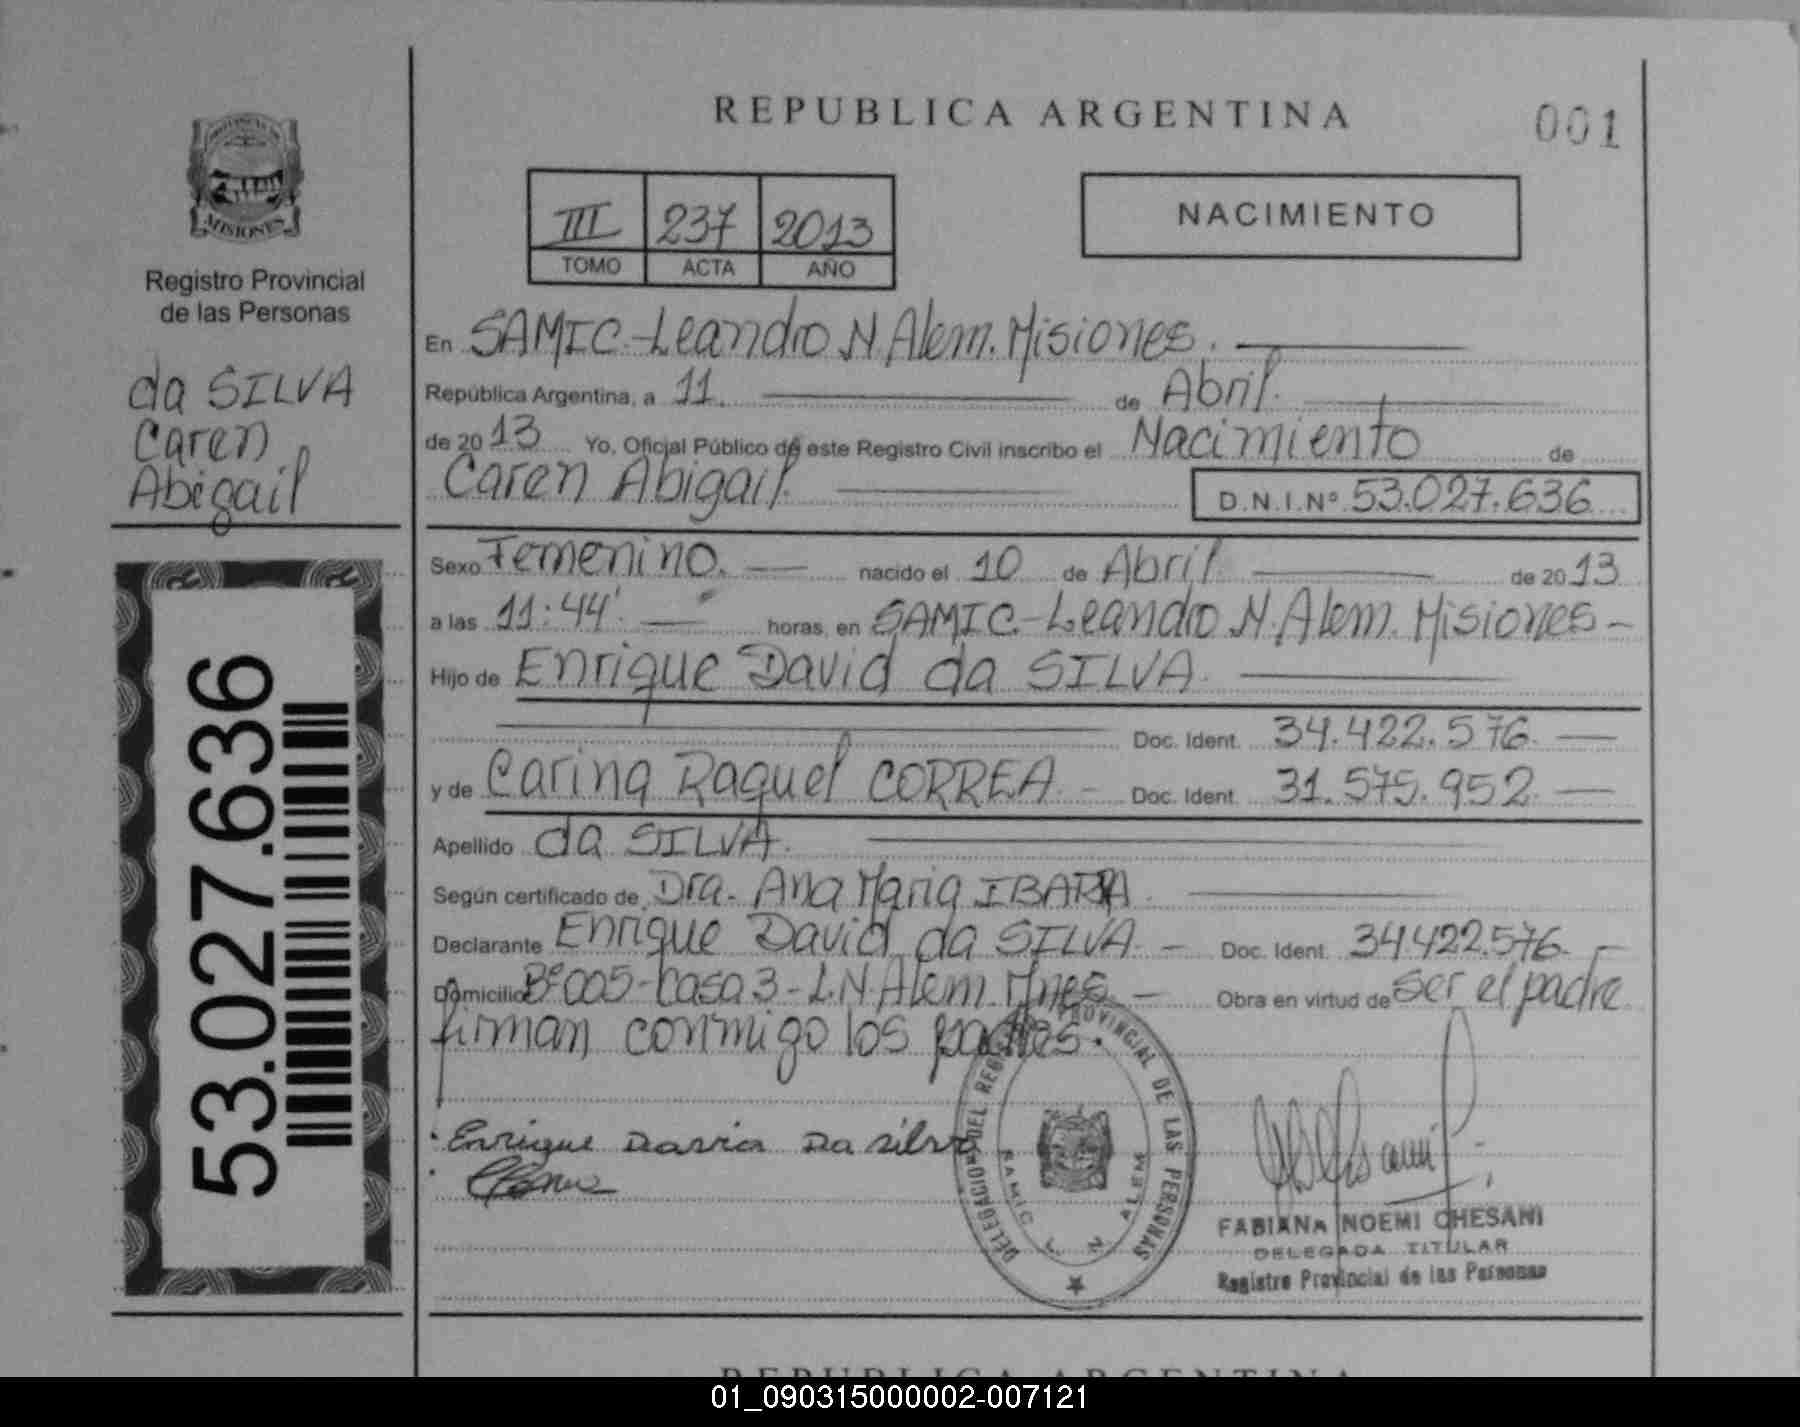 REPUBLICA ARGENTINA
001
PROVINCIA DE
MISIONES
Registro Provincial
de las Personas
da SILVA
Caren
Abigail
53.027.636
III 237 2013
TOMO ACTA AÑO
NACIMIENTO
En SAMIC-Leandro N. Alem. Misiones.
República Argentina, a 11. de Abril.
de 2013 Yo, Oficial Público de este Registro Civil inscribo el Nacimiento de
Caren Abigail. D.N.I.Nº 53.027.636
Sexo Femenino. nacido el 10 de Abril de 2013
a las 11:44' horas, en SAMIC-Leandro N. Alem. Misiones-
Hijo de Enrique David da SILVA.
Doc. Ident. 34.422.576.
y de Carina Raquel CORREA. Doc. Ident. 31.575.952
Apellido da SILVA.
Según certificado de Dra. Ana Maria IBARRA.
Declarante Enrique David da SILVA. Doc. Ident. 34422.576.
Domicilio Bº 005-Casa 3-L.N. Alem. Mnes. Obra en virtud de ser el padre
firman conmigo los padres.
Enrique David Da silva
DELEGACION DEL REGISTRO PROVINCIAL DE LAS PERSONAS
SAMIC L N ALEM
FABIANA NOEMI CHESANI
DELEGADA TITULAR
Registro Provincial de las Personas
REPUBLICA ARGENTINA
01_090315000002-007121